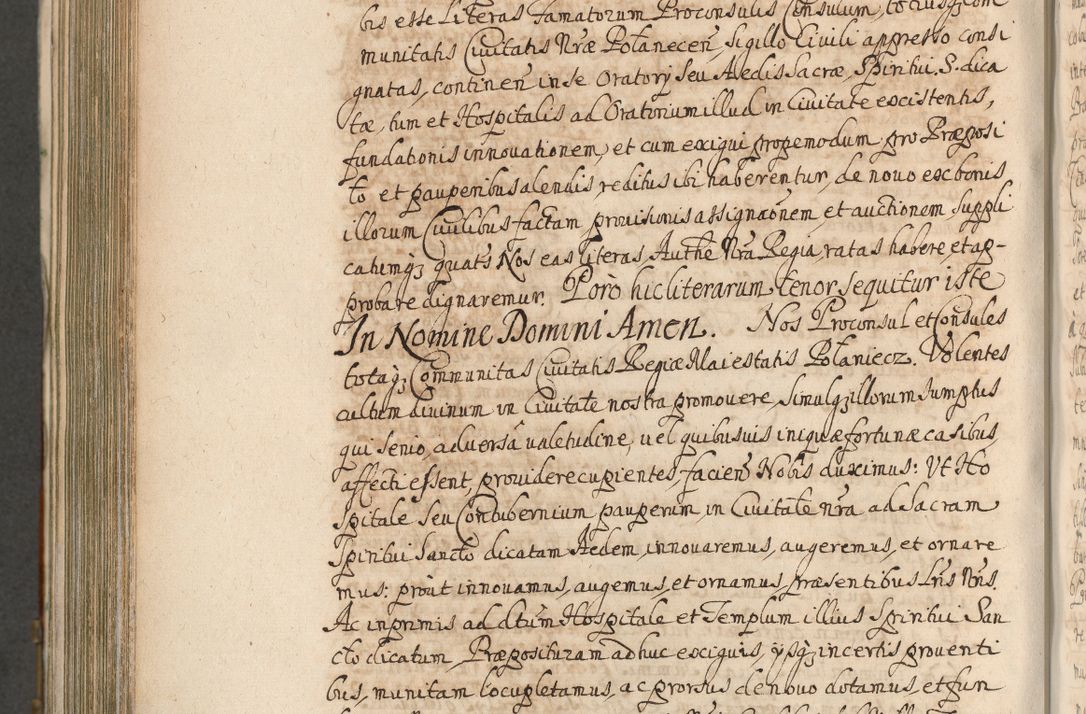 bis esse Literas Famatorum Proconsulis Consulum, totiusqꝫ Com
munitatis Ciuitatis Nræ Połanecen̄, Sigillo Ciuili appresso consi
gnatas, continen̄ in se Oratorÿ seu Aedis Sacræ, Spiritui. S. dica
tæ, tum et Hospitalis ad Oratorium illud in Ciuitate existentis,
fundationis innouationem, et cum exigui propemodum pro Præposi
to et pauperibus alendis, reditus ibi haberentur, de nouo ex bonis
illorum Ciuilibus factam prouisionis assignaõnem et auctionem, Suppli
catumqꝫ quats Nos eas literas, Authe Nra Regia, ratas habere, et ap-
probare dignaremur. Porò hic literarum tenor sequitur iste
In Nomine Domini Amen. Nos Proconsul et Consules
totaqꝫ Communitas Ciuitatis Regiæ Maiestatis Połaniecz. Volentes
cultum diuinum in Ciuitate nostra promouere, simulqꝫ illorum sumptus
qui senio, aduersâ ualetudine, uel quibusuis iniquæ fortunæ casibus
affecti essent, prouidere cupientes, facien̄ Nobis duximus: Vt Ho
spitale seu Contubernium pauperum, in Ciuitate nr̃a ad Sacram
Spiritui Sancto dicatam Aedem, innouaremus, augeremus, et ornare
mus: prout innouamus, augemus, et ornamus, præsentibus Lr̃is Nr̃is.
Ac inprimis ad dtum Hospitale et Templum illius Spiritui San
cto dicatum Præposituram adhuc exiguis, ypsqꝫ incertis prouenti
bus, munitam locupletamus, ac prorsus de nouo dotamus, et fun